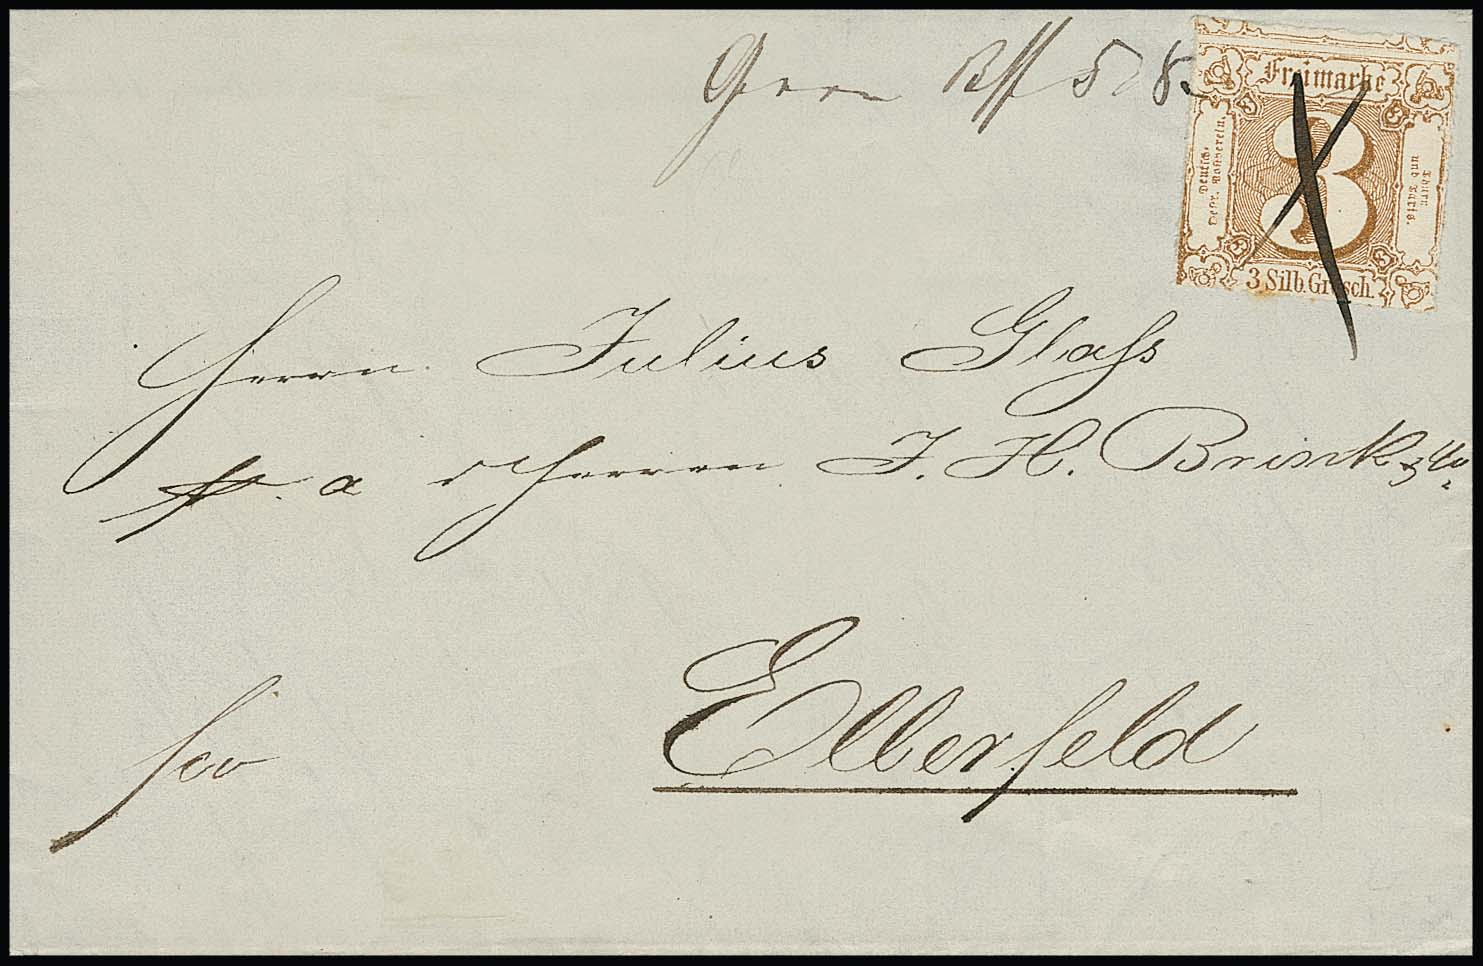 Gera Bhf 5/8.
Freimarke
Deutsch-
Oestr. Postverein.
3
Thurn
und Taxis.
3 Silb. Grosch.
Herrn Julius Glaſs
p. a Herren J. H. Brink & Co.
Elberfeld
fco